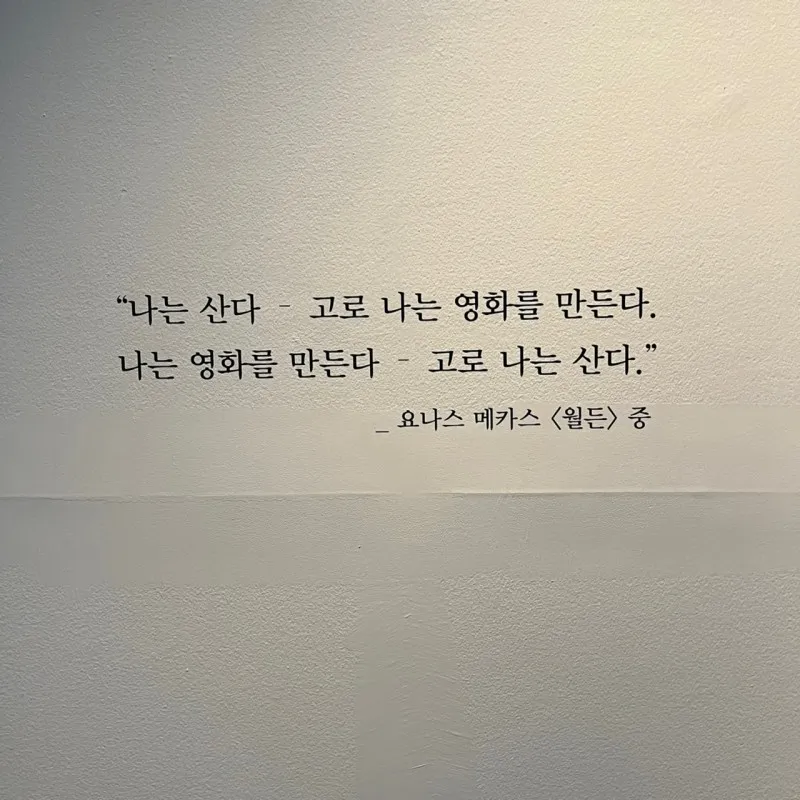 “나는 산다 - 고로 나는 영화를 만든다.
나는 영화를 만든다 - 고로 나는 산다.”
_ 요나스 메카스 〈월든〉 중